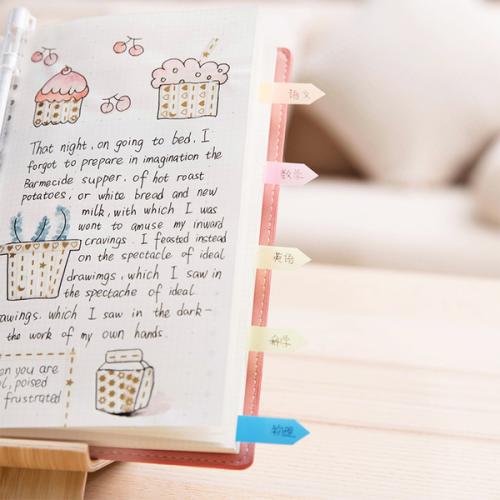 That night, on going to bed, I
forgot to prepare in imagination the
Barmecide supper. of hot roast
potatoes, or white bread and new
milk, with which I was
wont to amuse my inward
cravings. I feasted instead
on the spectacle of ideal
drawimgs, which I saw in
the spectache of ideal.
awings. which I saw in the dark-
the work of my own hands.
en you are
ol, poised
frustrated
语文
数学
英语
科学
物理